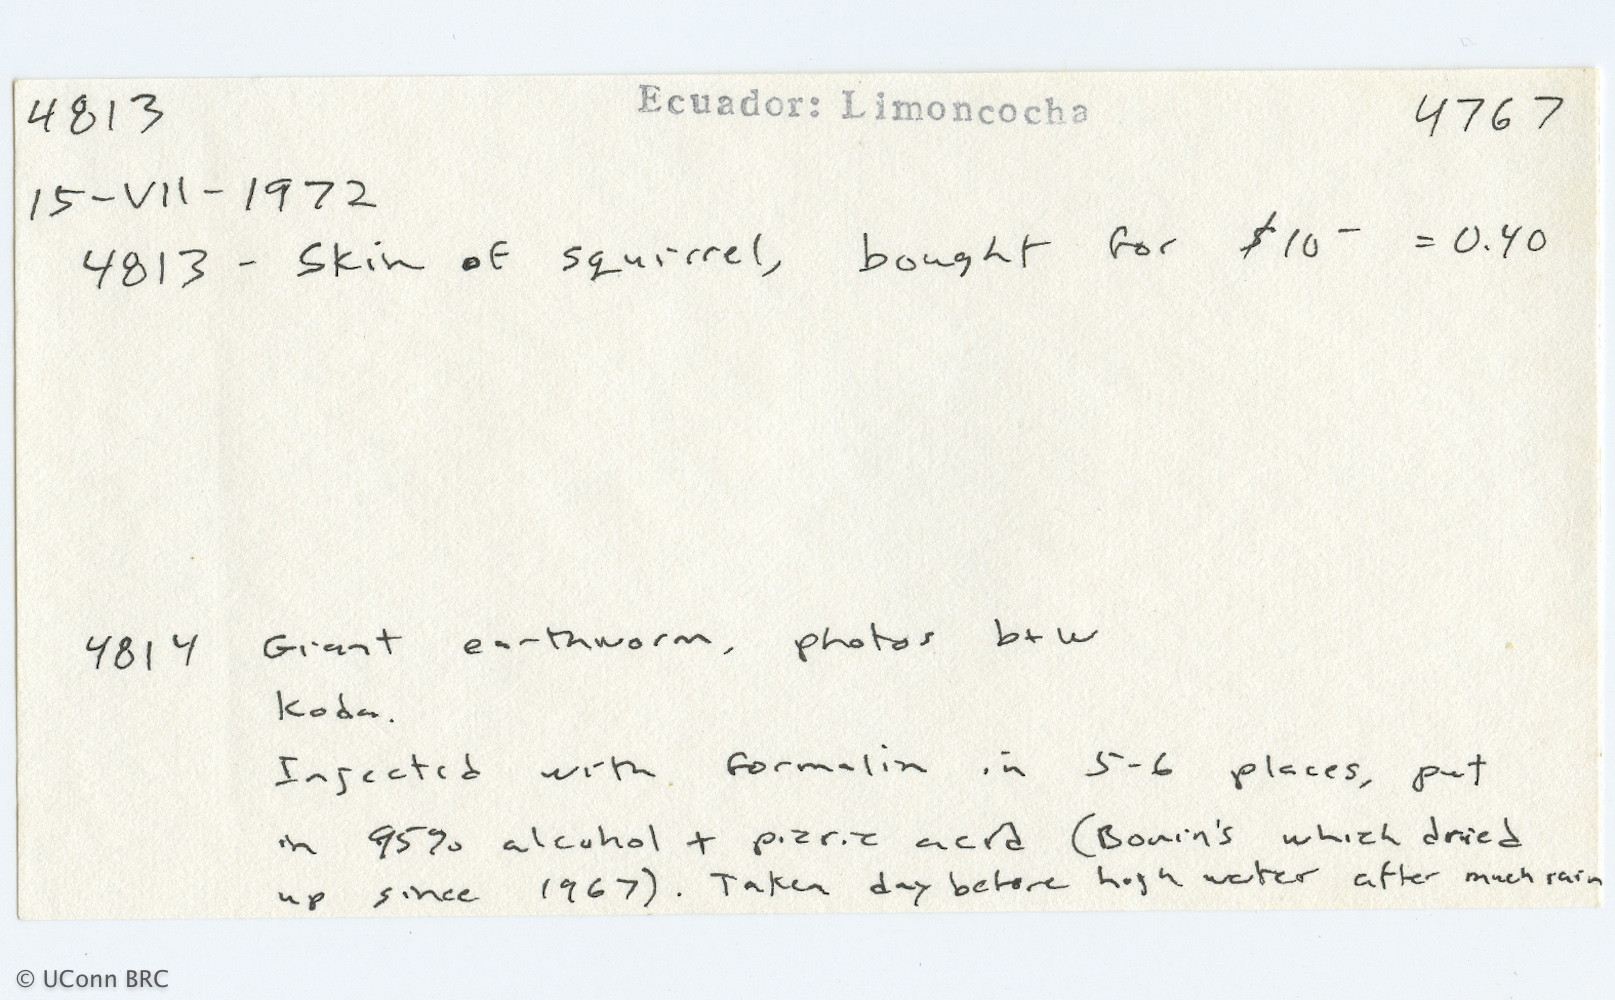 4813 Ecuador: Limoncocha 4767
15-VII-1972
4813 - Skin of squirrel, bought for $10- = 0.40
4814 Giant earthworm, photos b+w
Koda.
Injected with formalin in 5-6 places, put
in 95% alcohol + picric acid (Bouin's which dried
up since 1967). Taken day before high water after much rain
© UConn BRC